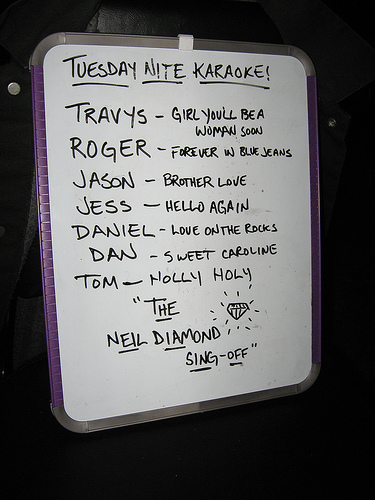 TUESDAY NITE KARAOKE!
TRAVYS - GIRL YOU'LL BE A
WOMAN SOON
ROGER - FOREVER IN BLUE JEANS
JASON - BROTHER LOVE
JESS - HELLO AGAIN
DANIEL - LOVE ON THE ROCKS
DAN - SWEET CAROLINE
TOM - HOLLY HOLY
"THE
NEIL DIAMOND
SING-OFF"